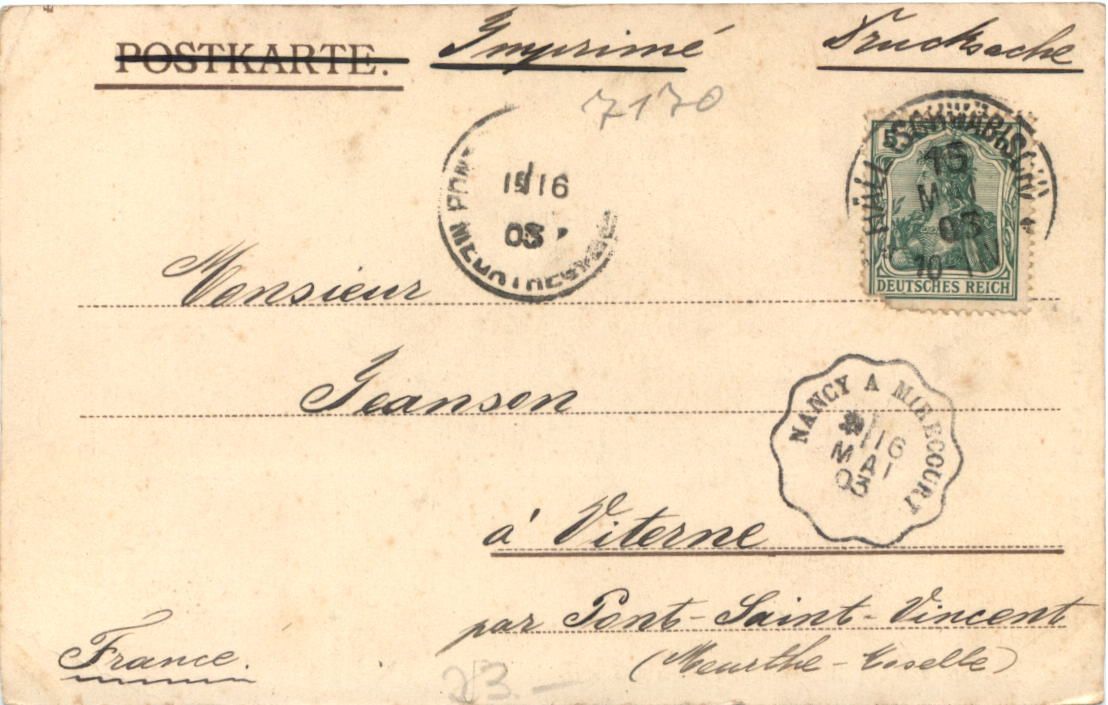 POSTKARTE. Imprimé Drucksache
7170
HALL (SCHWÄB.)
15
MAI
03
10-11
5
DEUTSCHES REICH
16
03
MEURTHE
Monsieur
Jeanson
NANCY A MIRECOURT
16
MAI
03
à Viterne
par Pont-Saint-Vincent
(Meurthe-Moselle)
France.
23.-